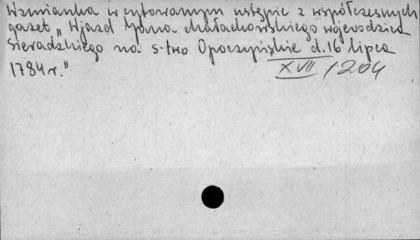 Wzmianka w cytowanym ustępie z współczesnych
gazet „Wjazd Jpana Małachowskiego wojewodzica
Sieradzkiego na s-two Opoczyńskie d. 16 lipca
1784 r."
XVII / 204